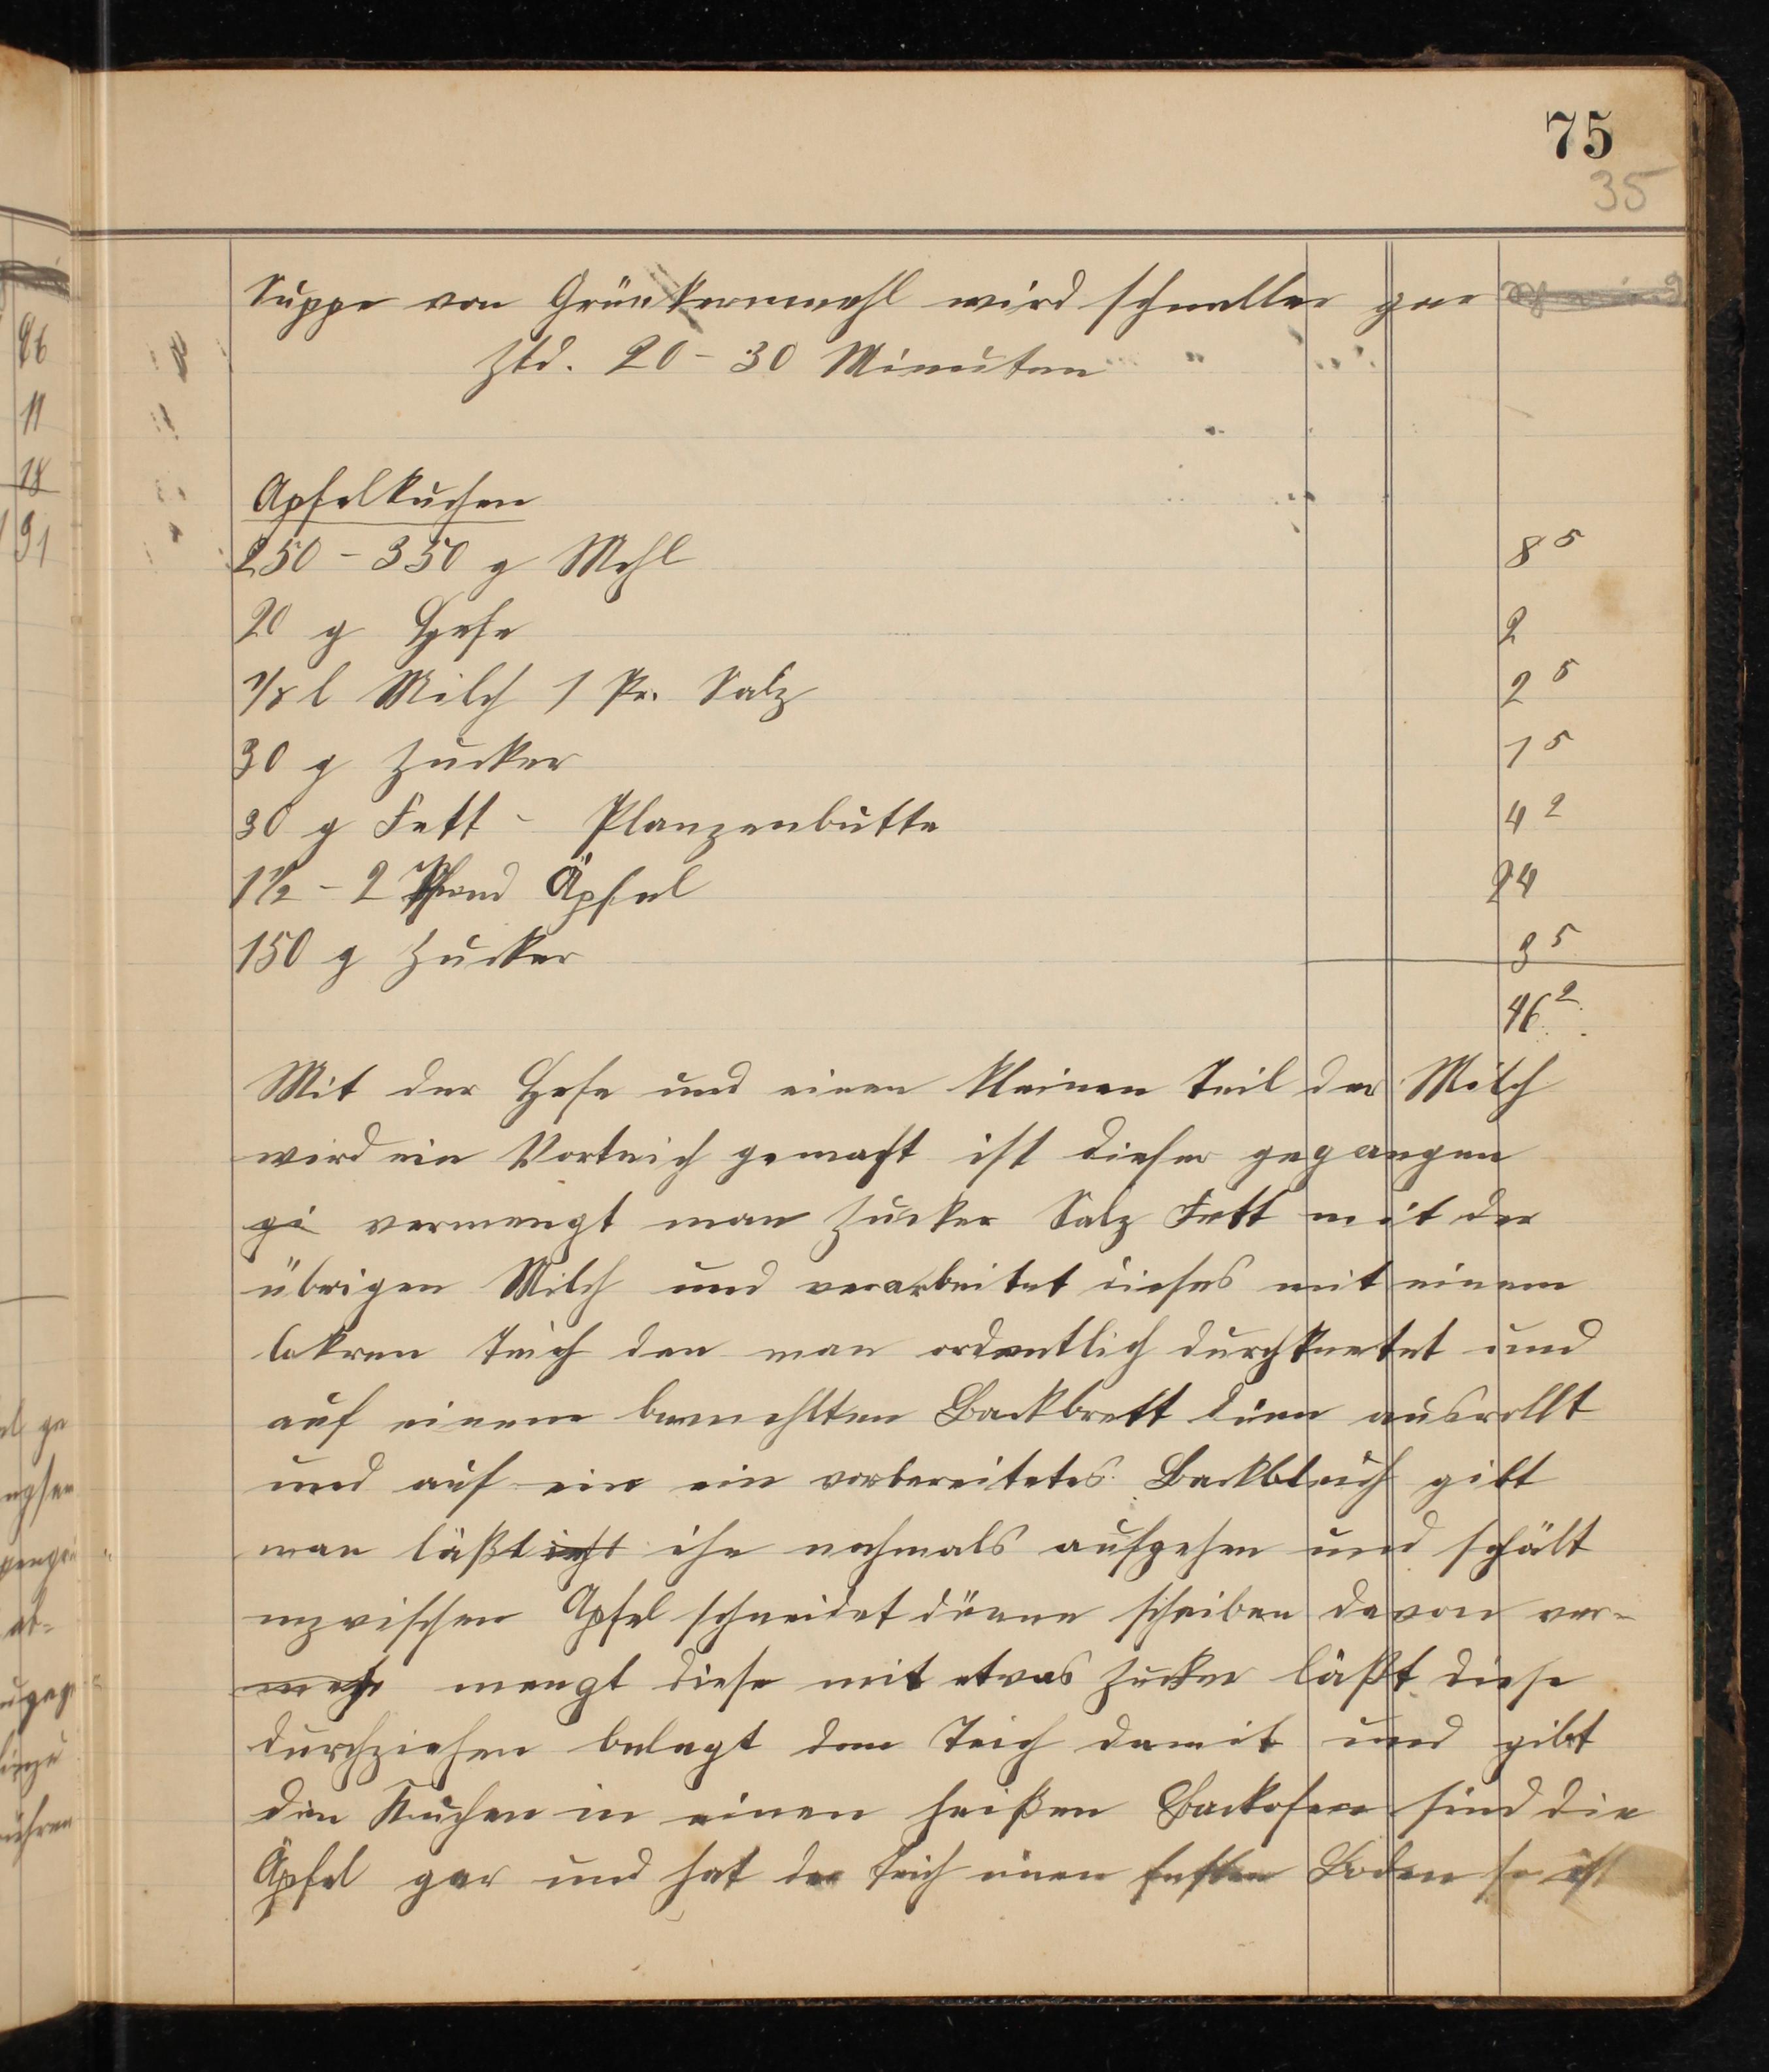 75
35
Suppe von Grünkernmehl wird schneller gar
Ztd. 20 - 30 Minuten
Apfelkuchen
250 - 350 g Mehl 8 5
20 g Hefe 2
1/8 l Milch 1 Pr. Salz 2 5
30 g Zucker 1 5
30 g Fett - Planzenbutte 4 2
1 1/2 - 2 Pfund Äpfel 24
150 g Zucker 3 5
46 2
Mit der Hefe und einen kleinen Teil der Milch
wird ein Vorteich gemacht ist dieser gegangen
gi vermengt man Zucker Salz Fett mit der
übrigen Milch und verarbeitet dieses mit einem
lokren Teich den man ordentlich durchknetet und
auf einem bemehlten Backbrett dünn ausrollt
und auf ein ein vorbereitetes Backblech gibt
man läßt ihn nochmals aufgehen und schält
inzwischen Äpfel schneidet dünne scheiben davon ver-
mengt diese mit etwas Zucker läßt diese
durchziehen belegt den Teich damit und gibt
den Kuchen in einen heißen Backofen sind die
Äpfel gar und hat der Teich einen festen Boden so ist
26
11
18
91